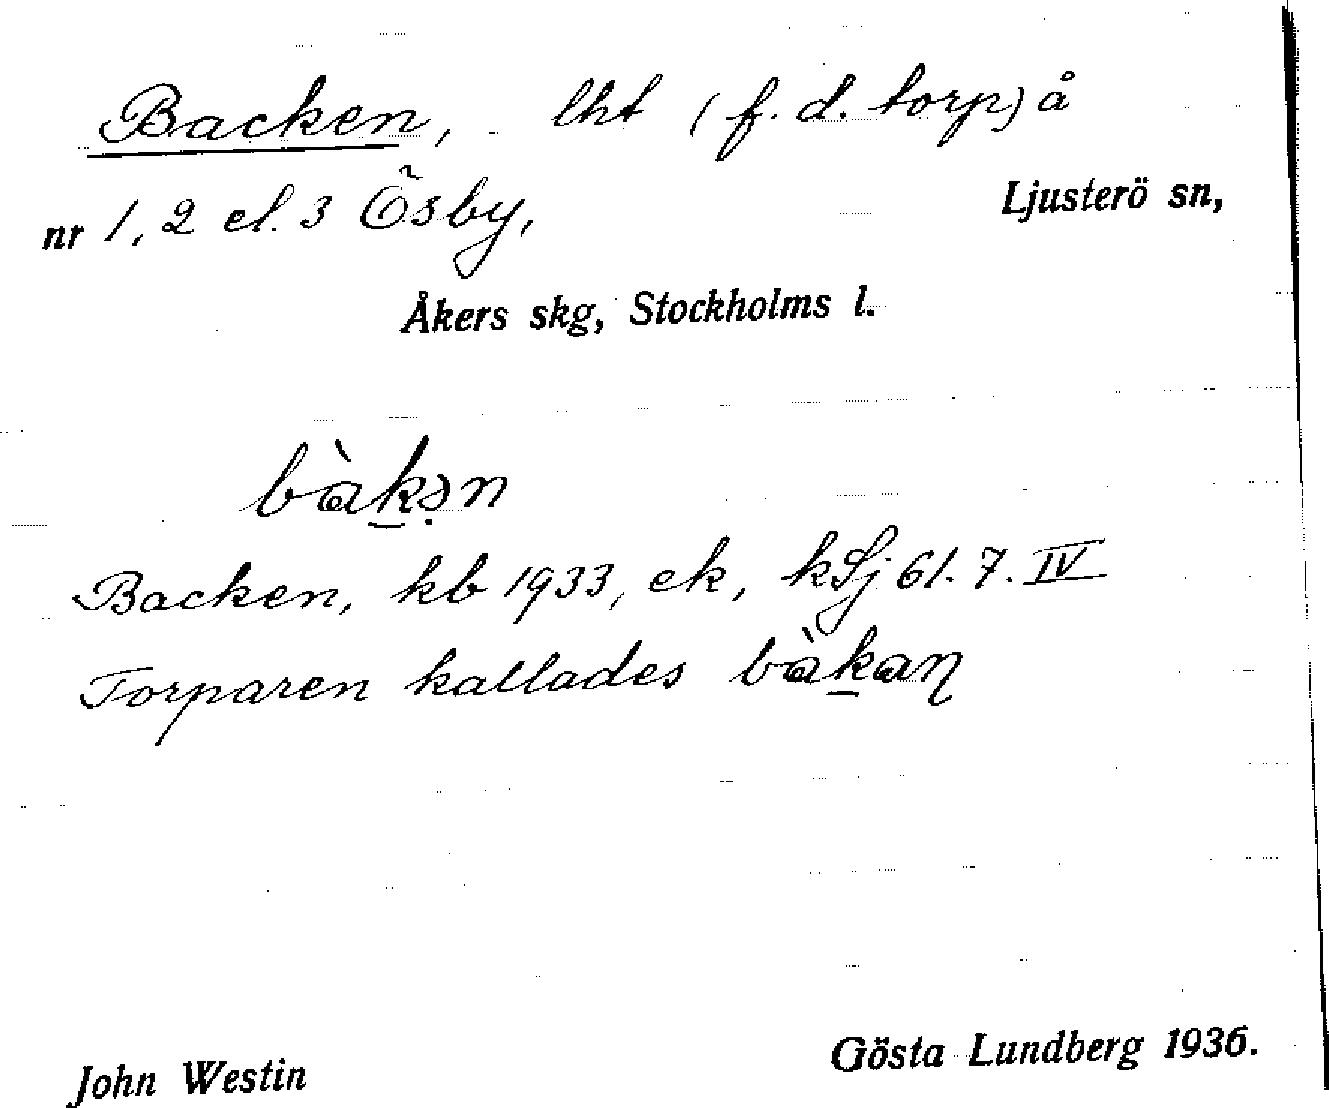 Backen, lht (f. d. torp) å
nr 1, 2 el. 3 Ösby, Ljusterö sn,
Åkers skg, Stockholms l.
bàkən
Backen, kb 1933, ek, kSj 61. 7. IV
Torparen kallades bàkaɳ
John Westin Gösta Lundberg 1936.